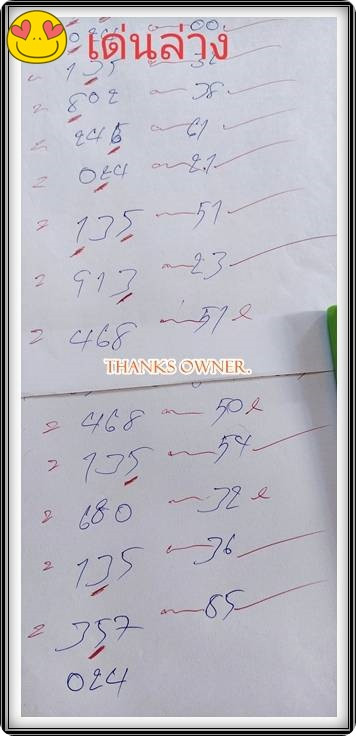 เด่นล่าง
024 00
135 32
802 38
246 61
024 21
135 51
913 23
468 51
THANKS OWNER.
468 50
135 54
680 32
135 36
357 85
024